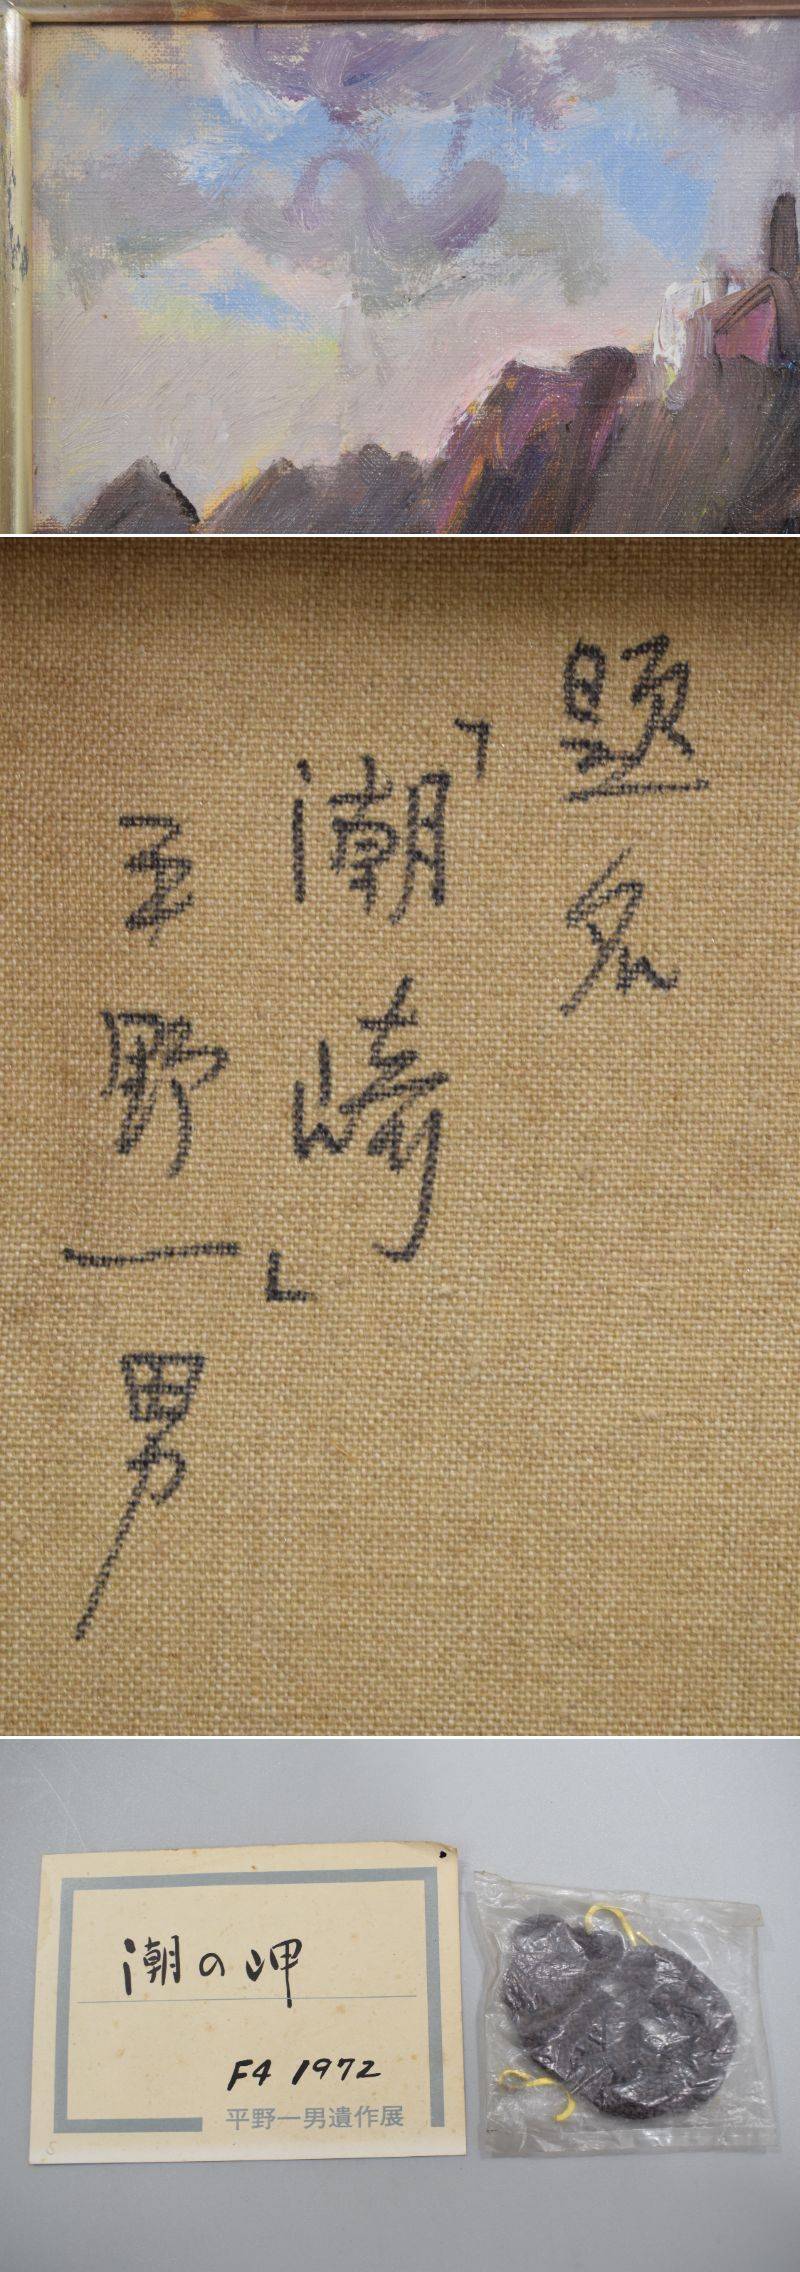 題名
「潮崎」
平野一男
潮の岬
F4 1972
平野一男遺作展